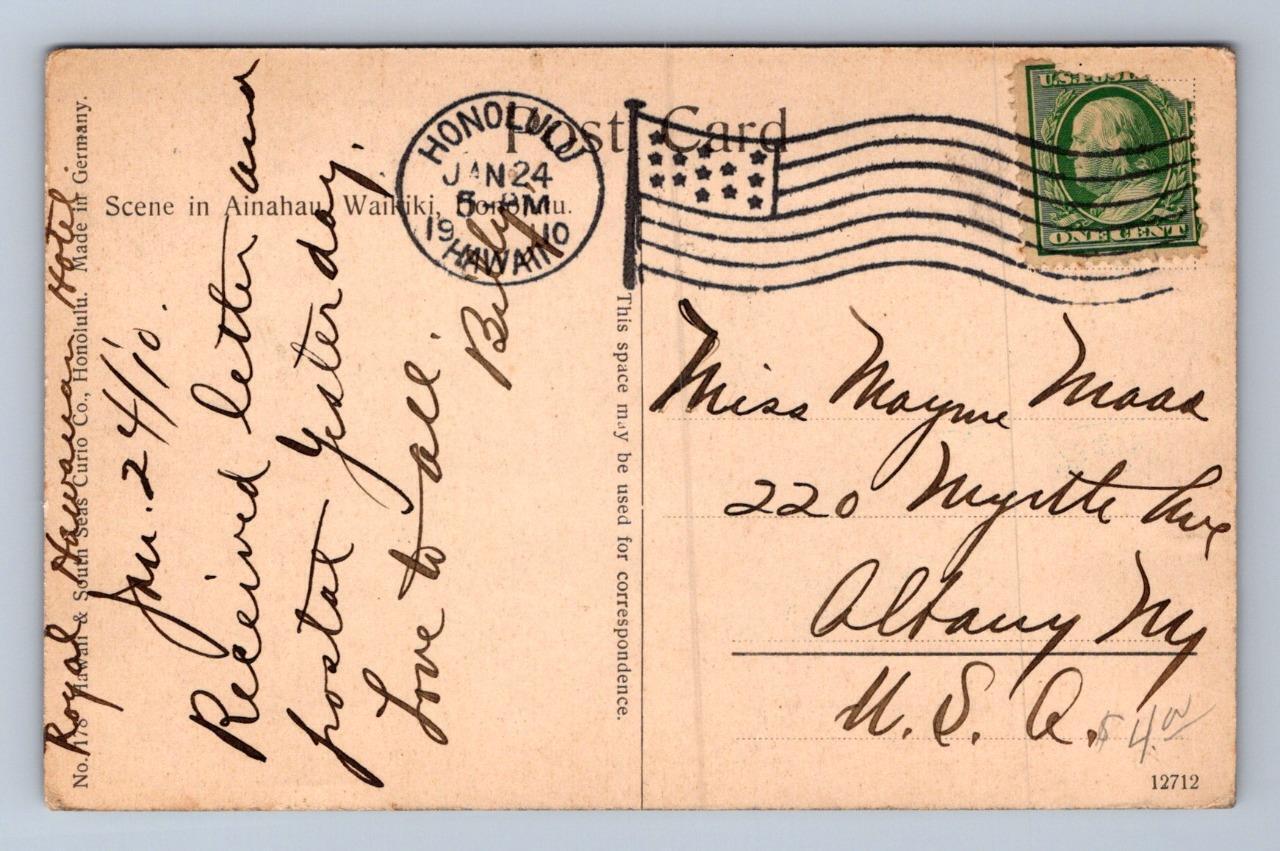 Post Card
Scene in Ainahau, Waikiki, Honolulu.
HONOLULU
JAN 24
5 PM
1910
HAWAII
U.S. POSTAGE
ONE CENT
Royal Hawaiian Hotel
Jan. 24/'10.
Received letter and
postal yesterday.
Love to all.
No. 178 Hawaii & South Seas Curio Co., Honolulu. Made in Germany.
This space may be used for correspondence.
Miss Mayme Maas
220 Myrtle Ave
Albany NY
U. S. A.
$4.00
12712